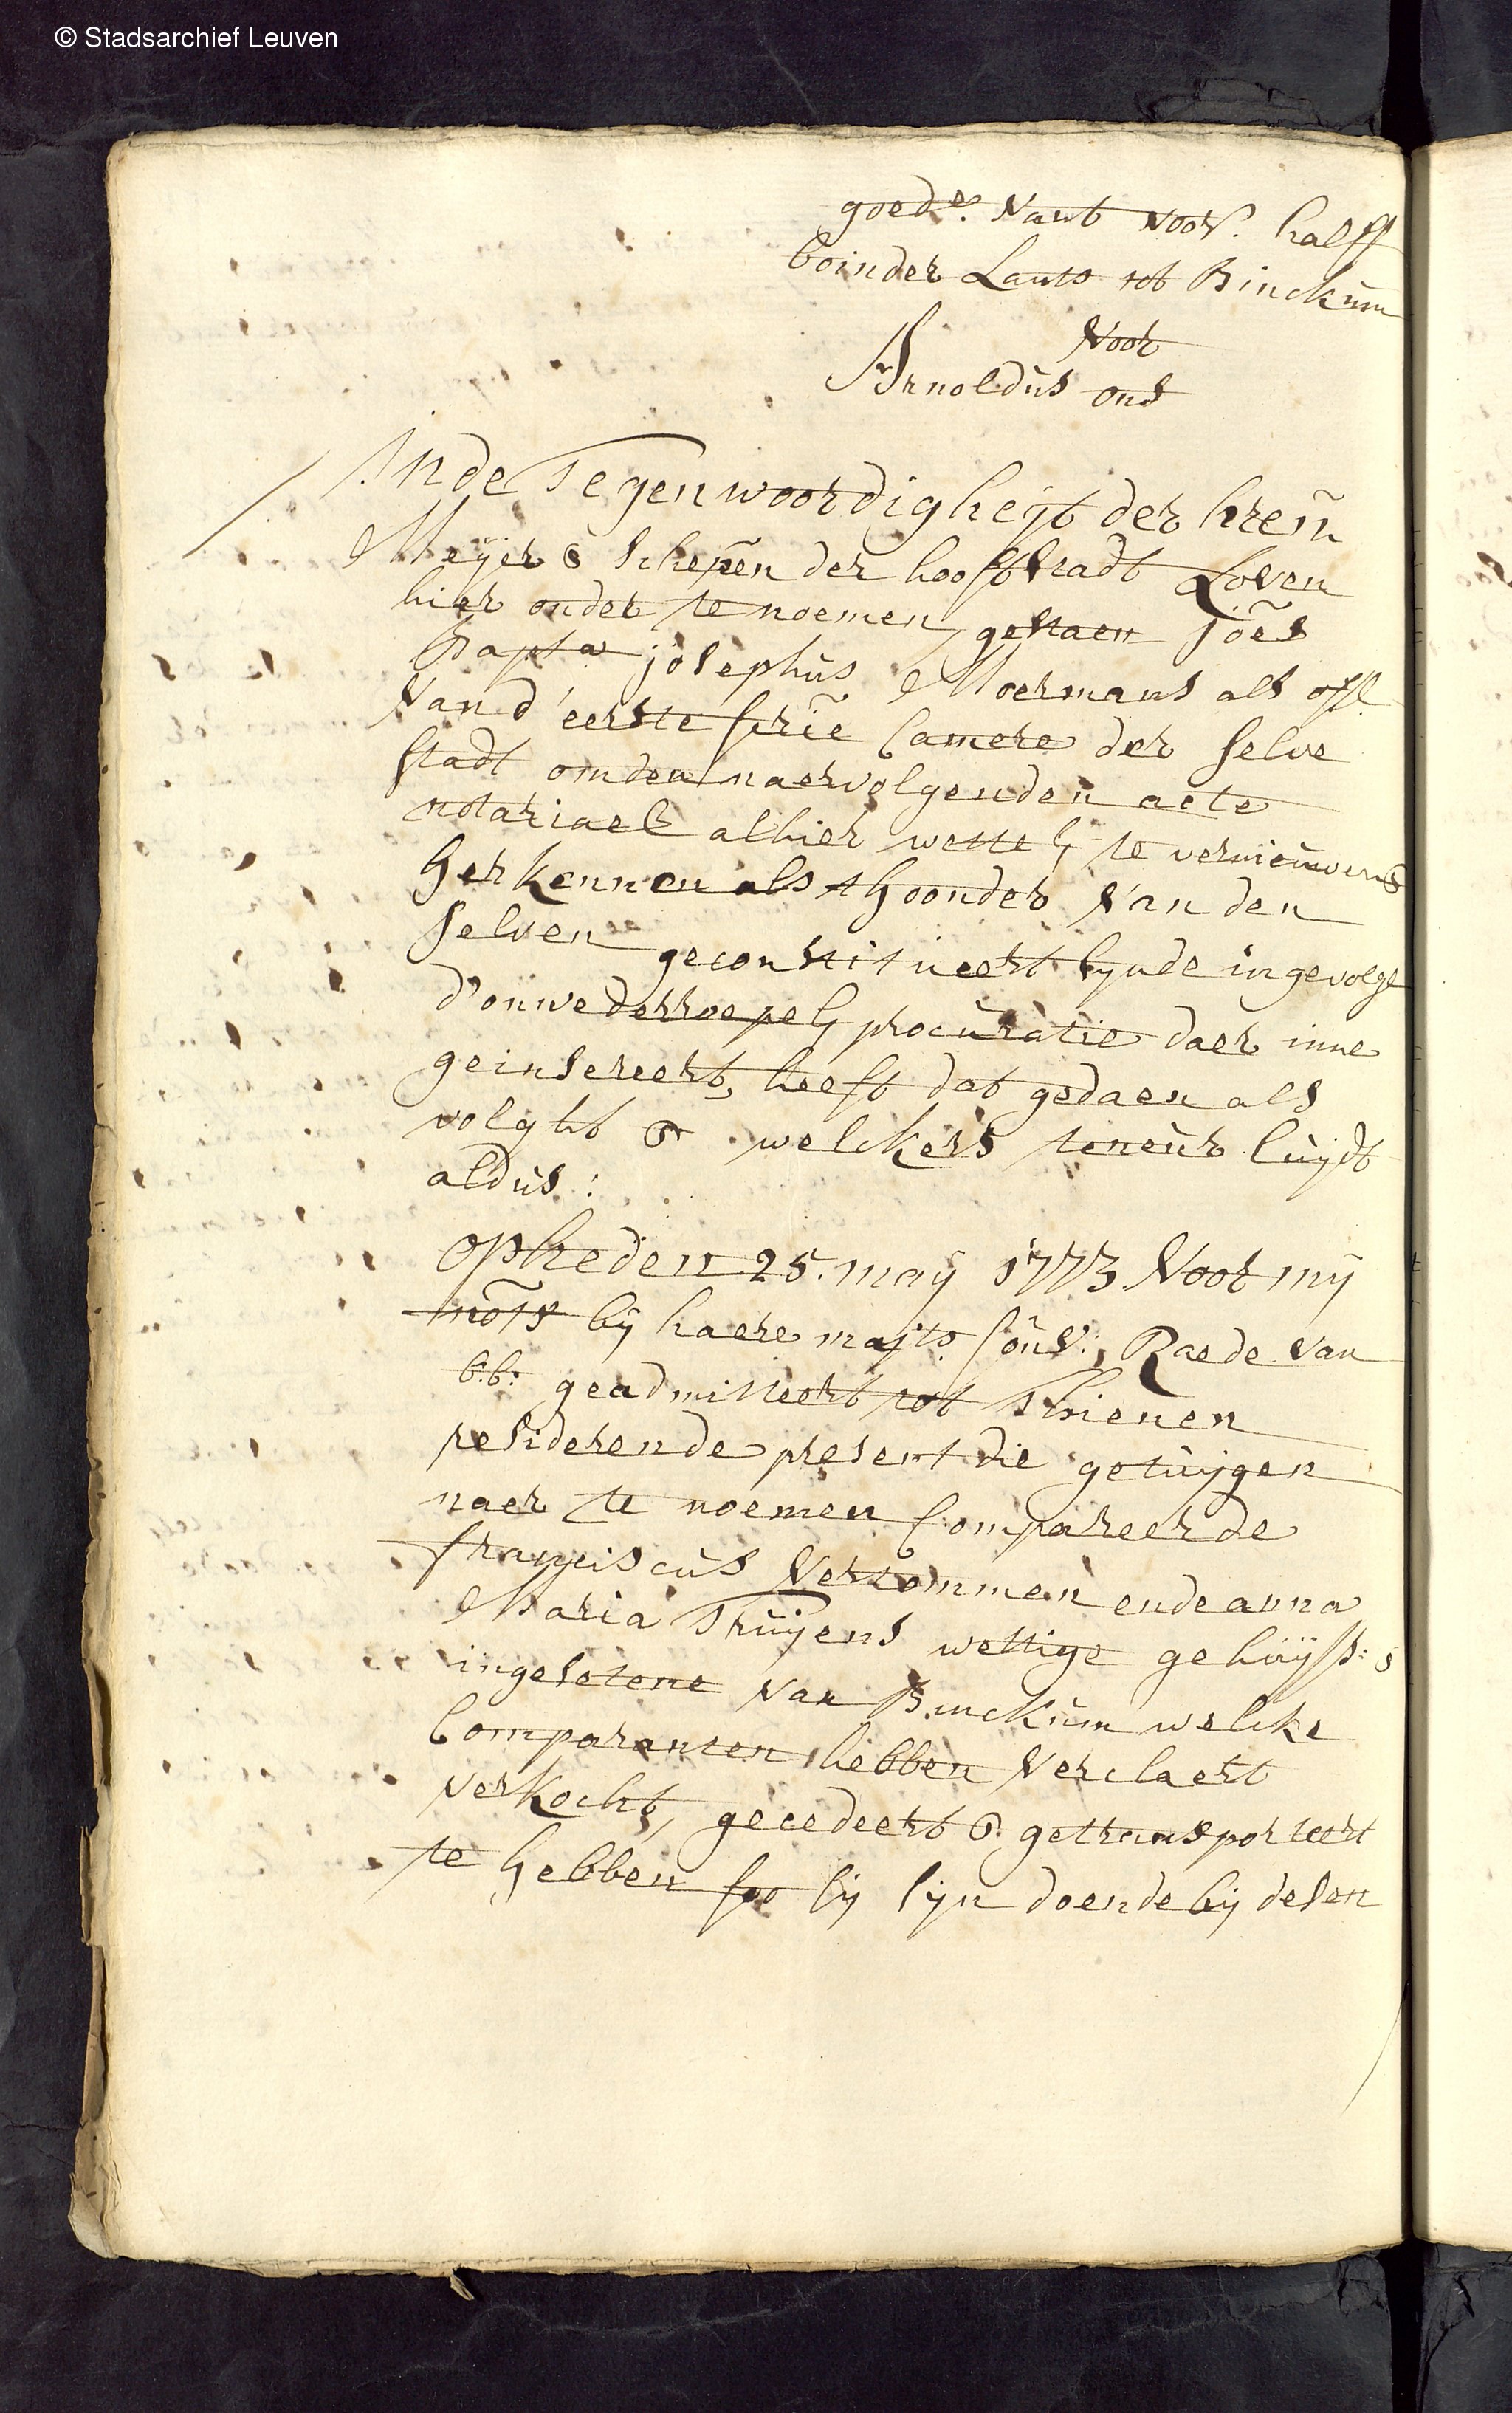 © Stadsarchief Leuven
goede. Vant voors. halff
boinder Lants tot Binckum
Voor
Arnoldus ons
Inde Tegenwoordigheijt der hreñ
Meijer & schepen der hooftstadt Loven
hier onder te noemen, gestaen joẽs
Bapta josephus Moermans als offl
Van d'eerste secrie Camere der selve
stadt om den naervolgenden acte
notariael alhier wettel. te vernieuwen &
herkennen als thoonder van den
selven geconstitueert sijnde ingevolge
d'onwederroepel. procuratie daer inne
geinsereert, heeft dat gedaen als
volght & welckers teneur luijdt
aldus:
Opheden 25. maij 1773 Voor mij
nots bij haere majts. souv. Raede van
bb: geadmitteert tot Thienen
residerende present die getuijgen
naer te noemen Compareerde
franciscus Vertommen ende anna
Maria Truijens wettige gehuijss:s
ingesetene van Binckum welcke
Comparanten hebben Verclaert
verkocht, gecedeert & getransporteert
te hebben soo sij sijn doende bij desen